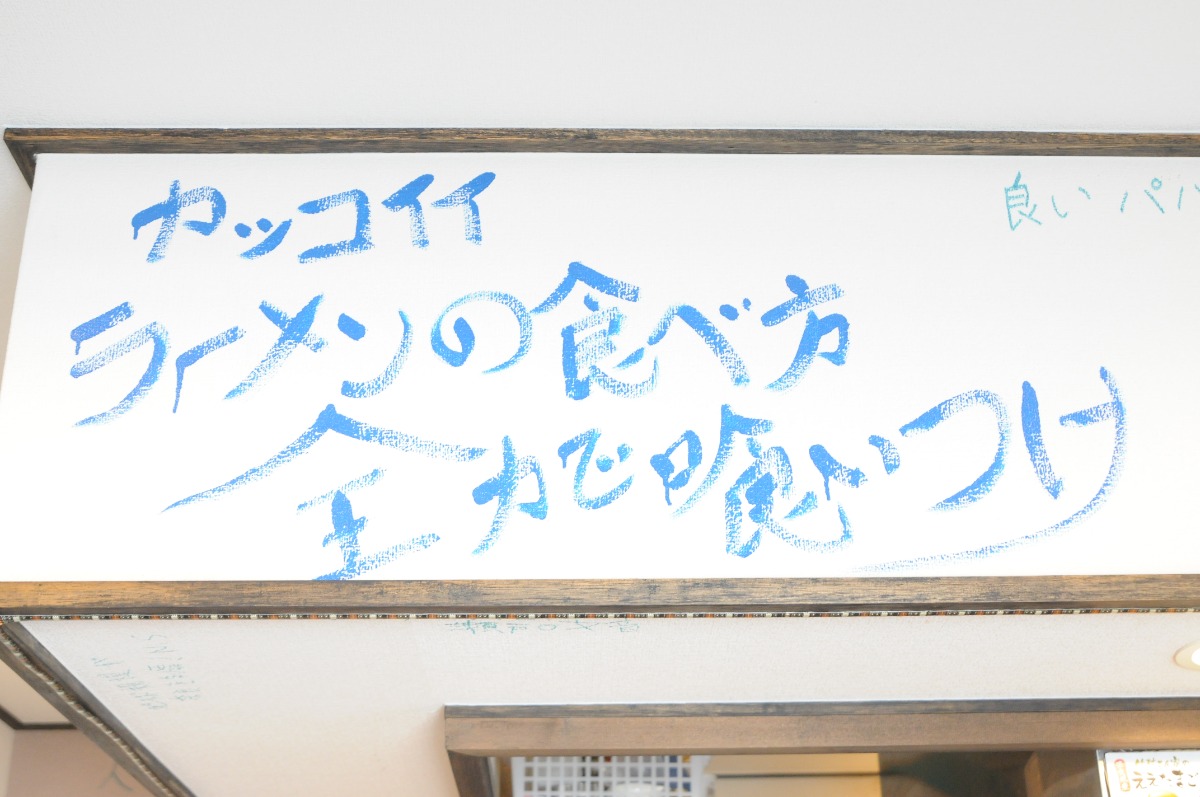 カッコイイ
ラーメンの食べ方
全力で喰いつけ
良いパパ
ええたまご